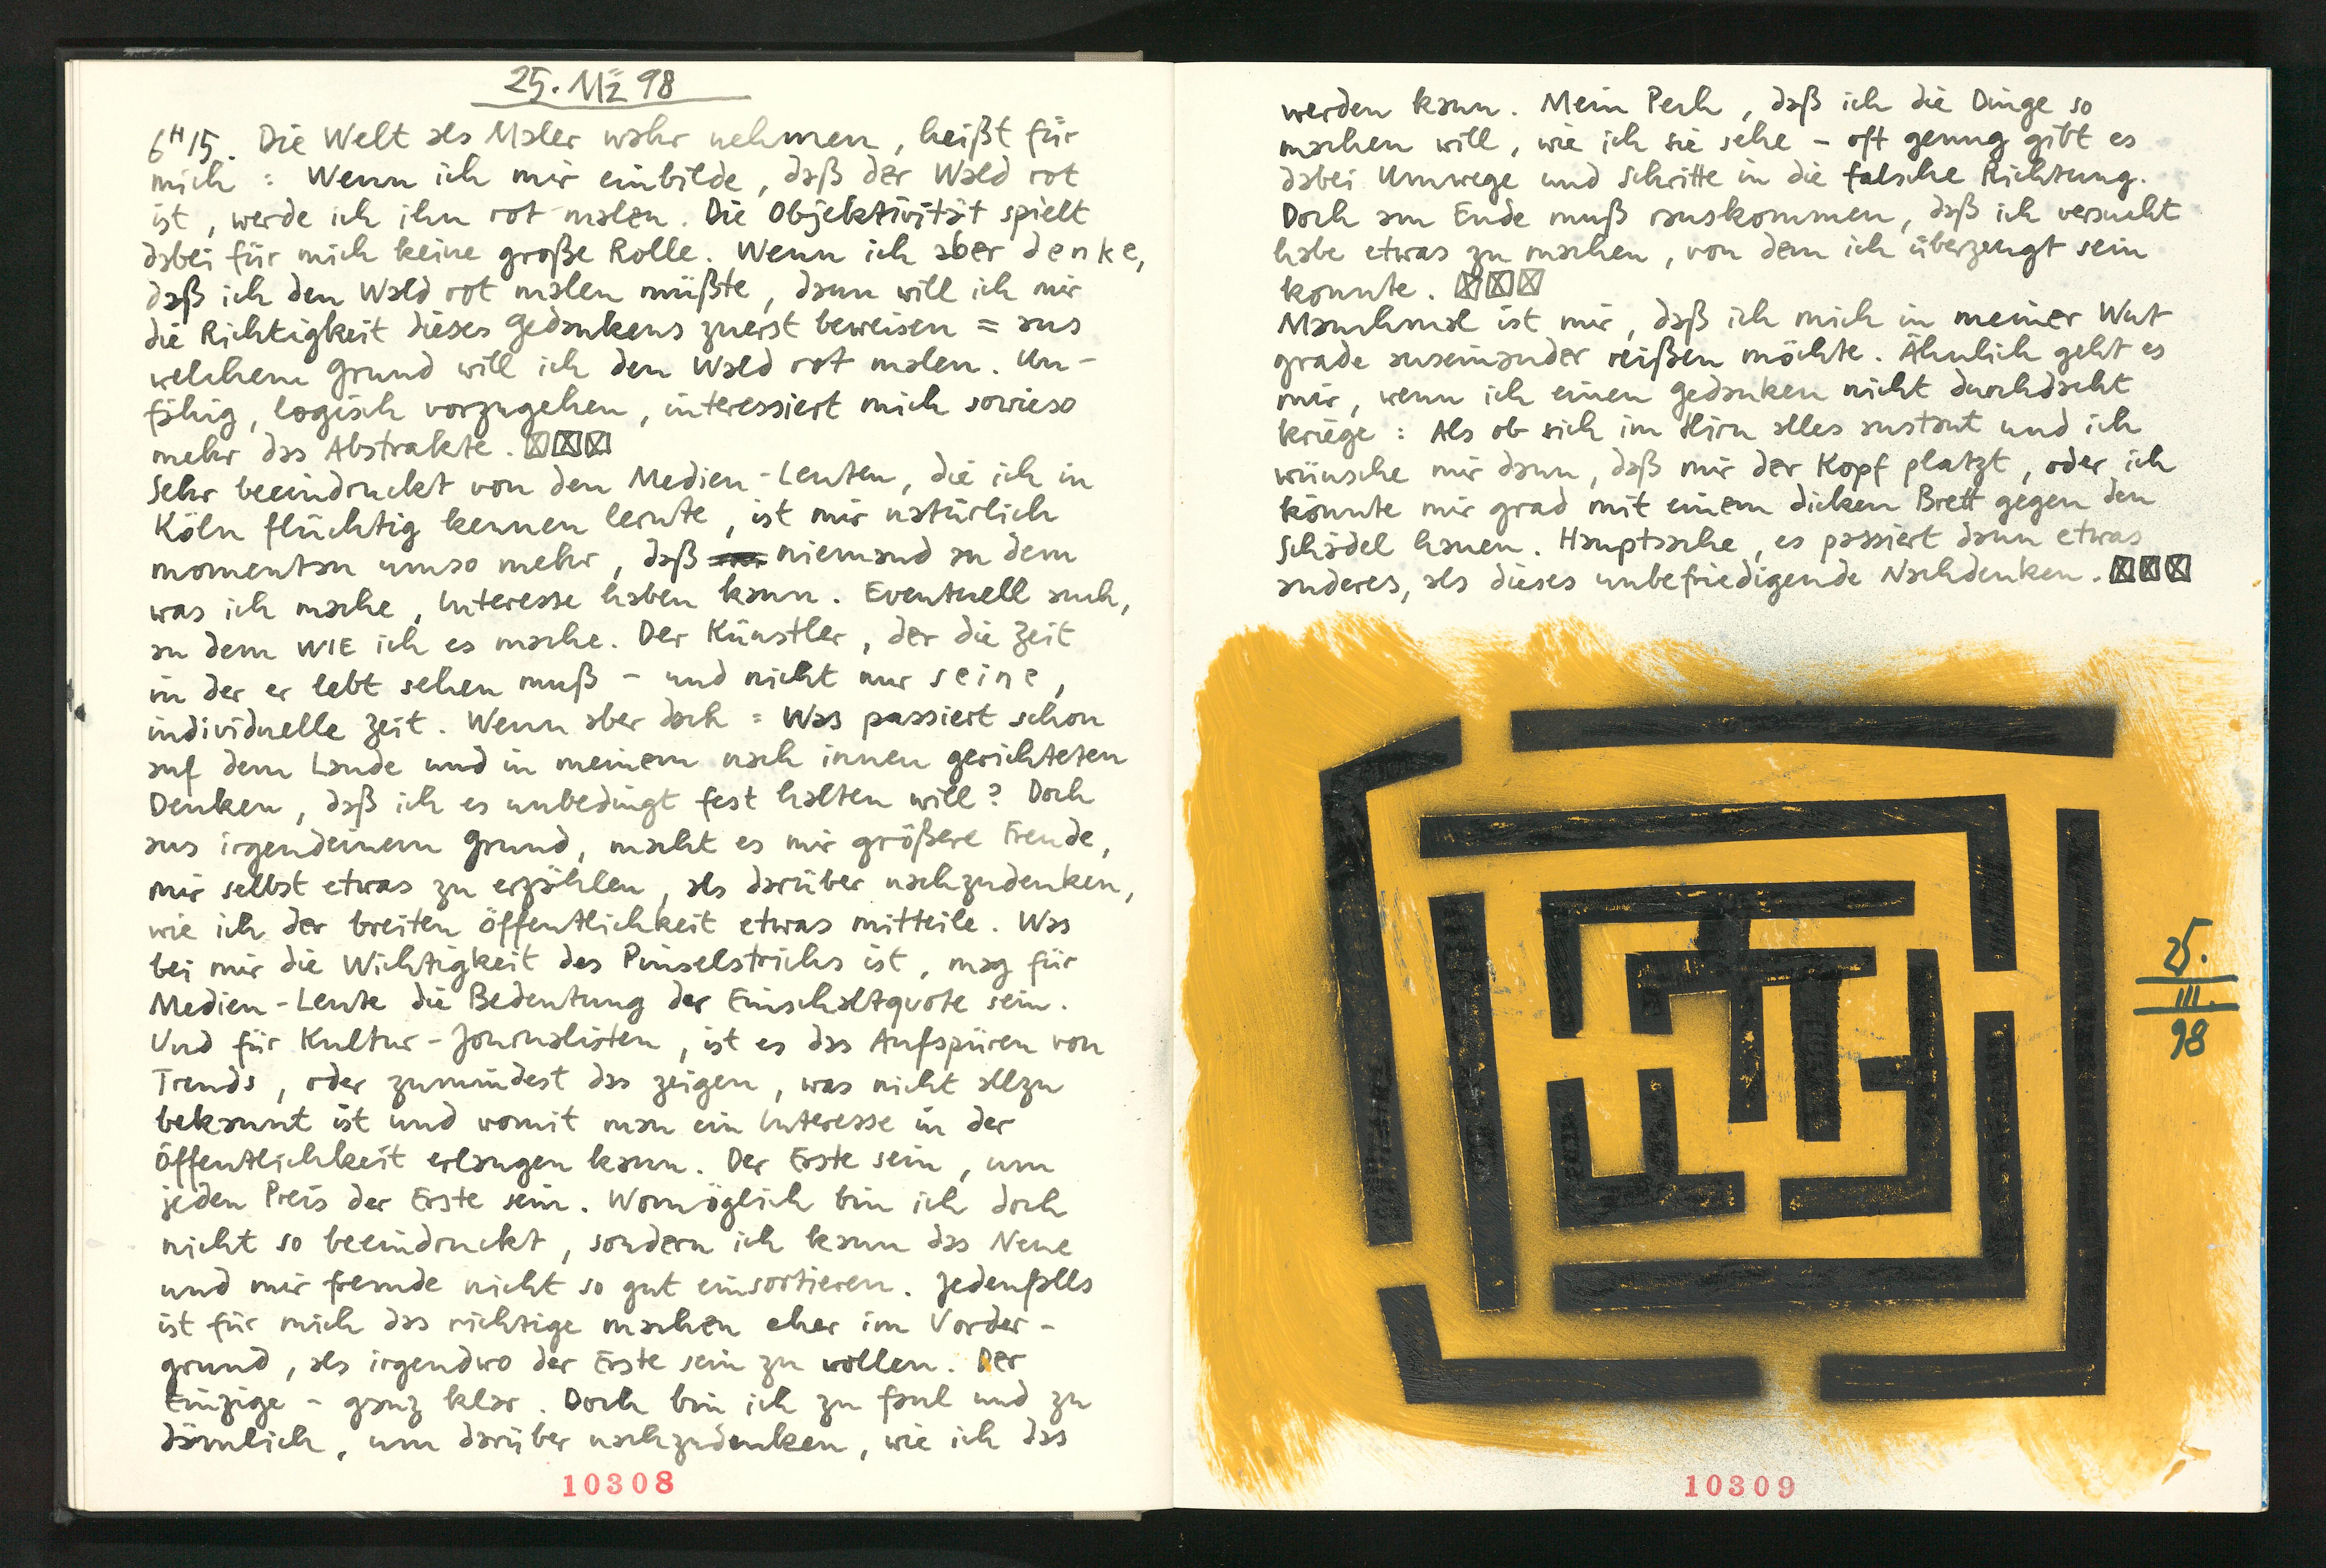 25. Mz 98
6H15. Die Welt als Maler wahr nehmen, heißt für
mich : Wenn ich mir einbilde, daß der Wald rot
ist, werde ich ihn rot malen. Die Objektivität spielt
dabei für mich keine große Rolle. Wenn ich aber denke,
daß ich den Wald rot malen müßte, dann will ich mir
die Richtigkeit dieses Gedankens zuerst beweisen = aus
welchem Grund will ich den Wald rot malen. Un-
fähig, logisch vorzugehen, interessiert mich sowieso
mehr das Abstrakte. ☒☒☒
Sehr beeindruckt von den Medien-Leuten, die ich in
Köln flüchtig kennen lernte, ist mir natürlich
momentan umso mehr, daß niemand an dem
was ich mache, Interesse haben kann. Eventuell auch,
an dem WIE ich es mache. Der Künstler, der die Zeit
in der er lebt sehen muß - und nicht nur seine,
individuelle Zeit. Wenn aber doch = Was passiert schon
auf dem Lande und in meinem nach innen gerichteten
Denken, daß ich es unbedingt fest halten will? Doch
aus irgendeinem Grund, macht es mir größere Freude,
mir selbst etwas zu erzählen, als darüber nachzudenken,
wie ich der breiten Öffentlichkeit etwas mitteile. Was
bei mir die Wichtigkeit des Pinselstrichs ist, mag für
Medien-Leute die Bedeutung der Einschaltquote sein.
Und für Kultur-Journalisten, ist es das Aufspüren von
Trends, oder zumindest das zeigen, was nicht allzu
bekannt ist und womit man ein Interesse in der
Öffentlichkeit erlangen kann. Der Erste sein, um
jeden Preis der Erste sein. Womöglich bin ich doch
nicht so beeindruckt, sondern ich kann das Neue
und mir fremde nicht so gut einsortieren. Jedenfalls
ist für mich das richtige machen eher im Vorder-
grund, als irgendwo der Erste sein zu wollen. Der
Einzige - ganz klar. Doch bin ich zu faul und zu
dämlich, um darüber nachzudenken, wie ich das
10308
werden kann. Mein Pech, daß ich die Dinge so
machen will, wie ich sie sehe - oft genug gibt es
dabei Umwege und Schritte in die falsche Richtung.
Doch am Ende muß rauskommen, daß ich versucht
habe etwas zu machen, von dem ich überzeugt sein
konnte. ☒☒☒
Manchmal ist mir, daß ich mich in meiner Wut
grade auseinander reißen möchte. Ähnlich geht es
mir, wenn ich einen Gedanken nicht durchdacht
kriege : Als ob sich im Hirn alles anstaut und ich
wünsche mir dann, daß mir der Kopf platzt, oder ich
könnte mir grad mit einem dicken Brett gegen den
Schädel hauen. Hauptsache, es passiert dann etwas
anderes, als dieses unbefriedigende Nachdenken. ☒☒☒
25.
III.
98
10309